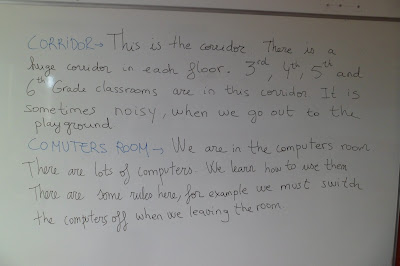 CORRIDOR → This is the corridor There is a
huge corridor in each floor. 3rd, 4th, 5th and
6th Grade classrooms are in this corridor It is
sometimes noisy, when we go out to the
playground
COMUTERS ROOM → We are in the computers room
There are lots of computers. We learn how to use them
There are some rules here, for example we must switch
the computers off when we leaving the room.